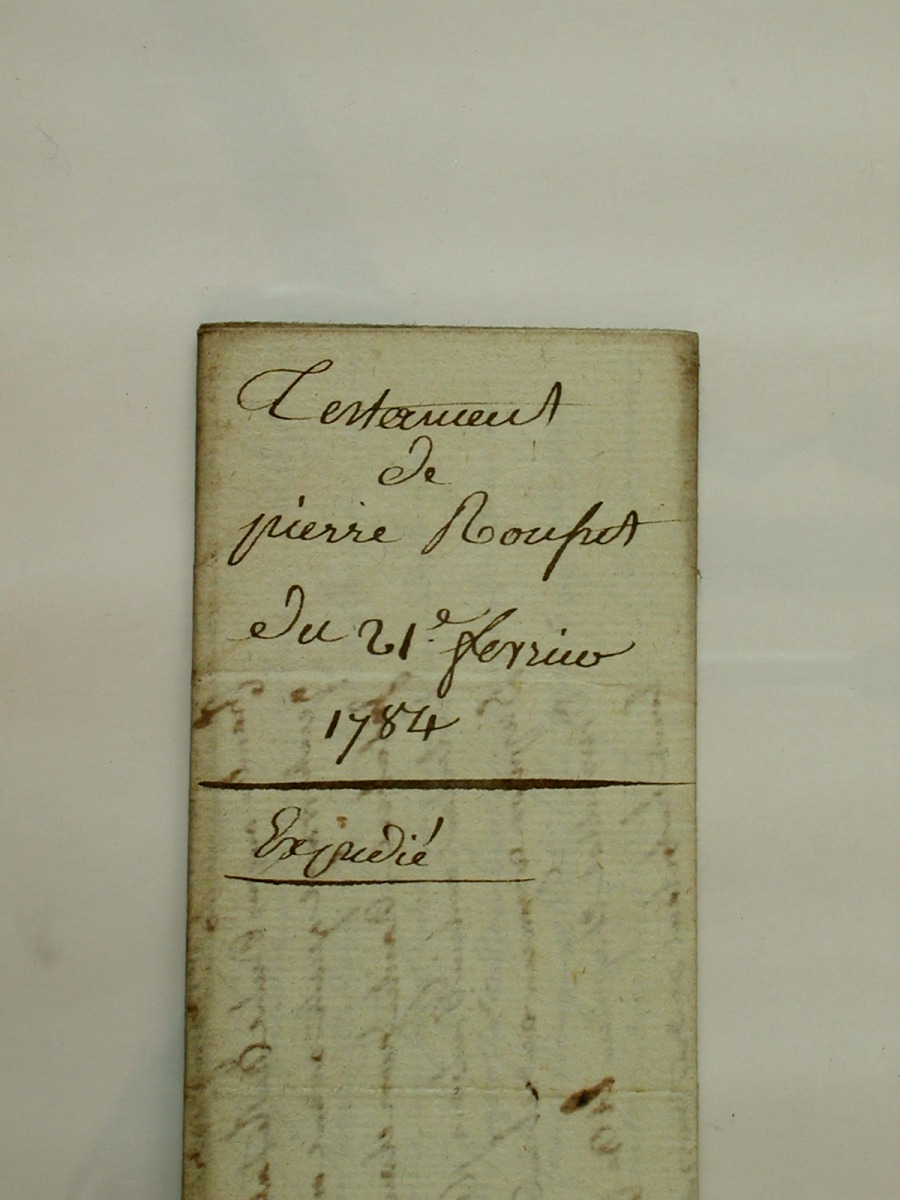 Testament
de
pierre Rousset
du 21.e fevrier
1784
Expedié